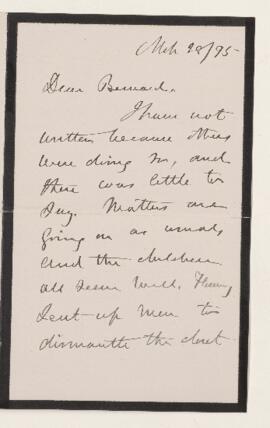 Mch 28/95
Dear Bernard,
I have not
written because others
were doing so, and
there was little to
say. Matters are
going on as usual,
and the children
all seem well. Fleming
sent up men to
dismantle the closet